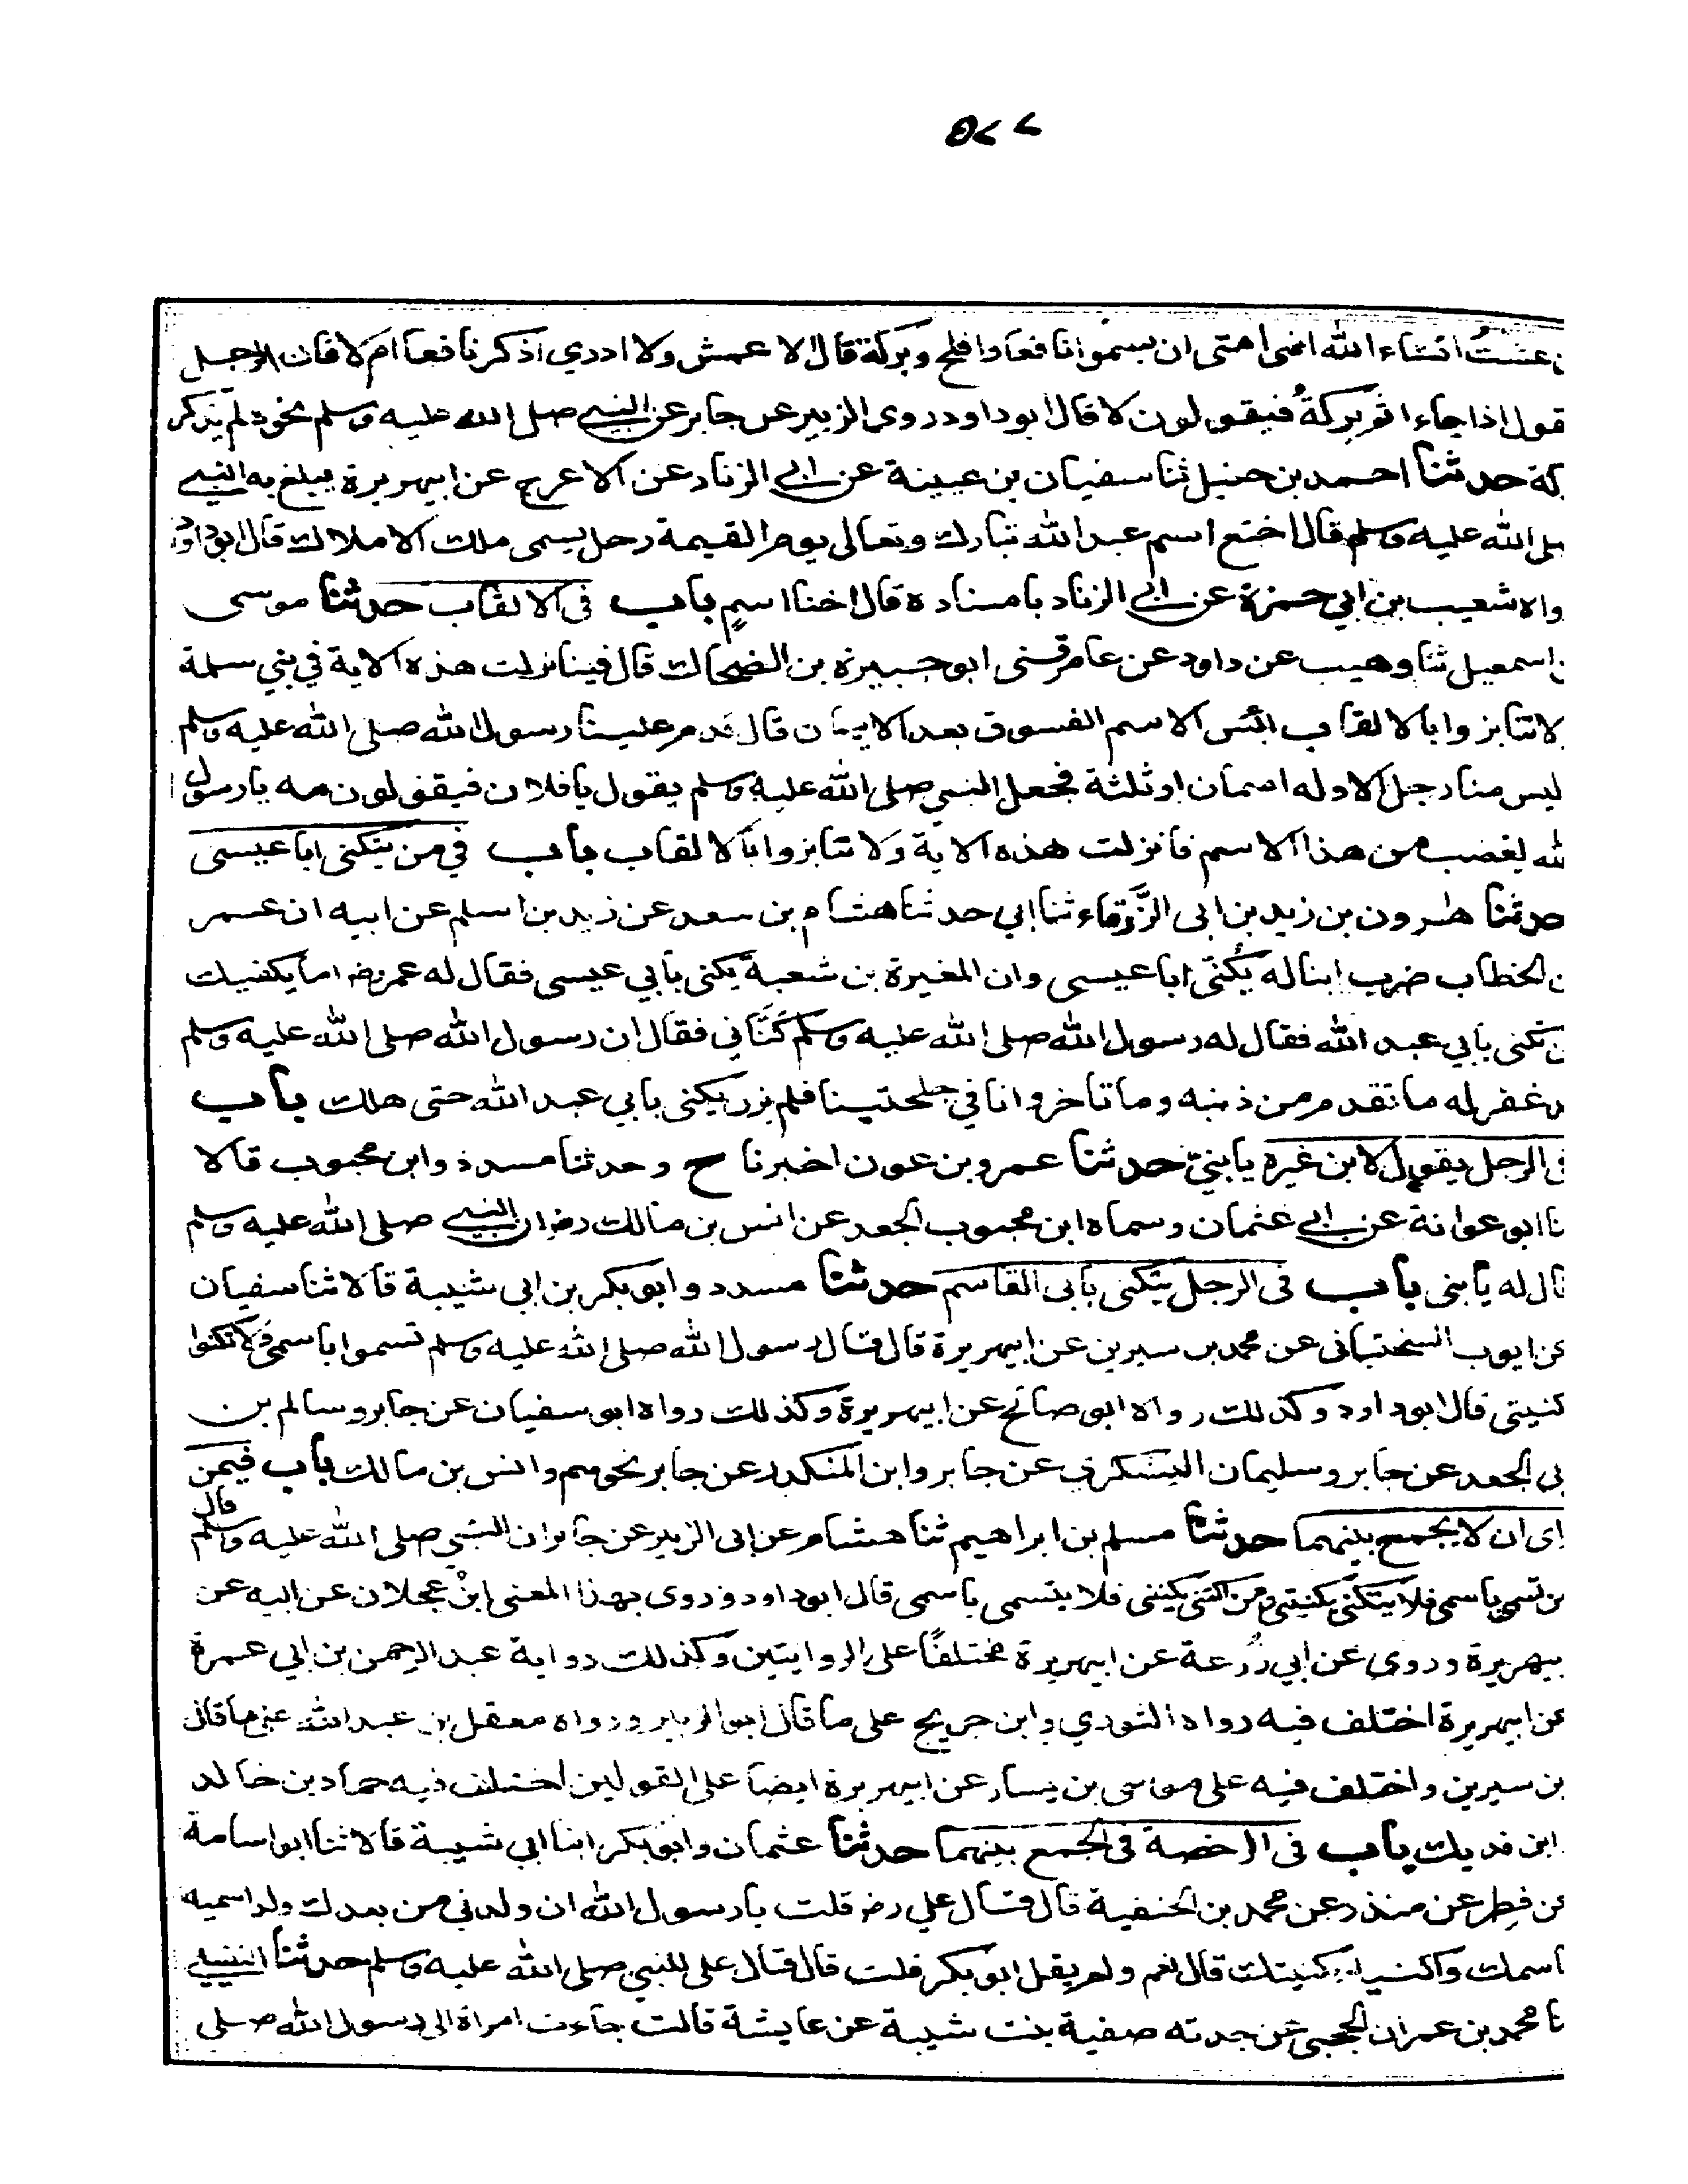 عشت انشاء الله انهى امتى ان يسموا نافعا وافلح وبركة قال الاعمش ولا ادري اذكر نافعا ام لا فان الرجل
قول اذا جاء اثم بركة فيقولون لا قال ابو داود روى الزبير عن جابر عن النبي صلى الله عليه وسلم نحوه لم يذكر
كة حدثنا احمد بن حنبل ثنا سفيان بن عيينة عن ابي الزناد عن الاعرج عن ابيهريرة يبلغ به النبي
صلى الله عليه وسلم قال اخنع اسم عبد الله تبارك وتعالى يوم القيمة رجل يسمى ملك الاملاك قال ابو داود
واه شعيب بن ابي حمزة عن ابي الزناد باسناده قال اخنا اسم باب في الالقاب حدثنا موسى
ن اسمعيل ثنا وهيب عن داود عن عامر ثنى ابو جبيرة بن الضحاك قال فينا نزلت هذه الاية في بني سلمة
لا تنابزوا بالالقاب بئس الاسم الفسوق بعد الايمان قال قدم علينا رسول الله صلى الله عليه وسلم
ليس منا رجل الا وله اسمان او ثلثة فجعل النبي صلى الله عليه وسلم يقول يا فلان فيقولون مه يا رسول
لله يغضب من هذا الاسم فانزلت هذه الاية ولا تنابزوا بالالقاب باب في من يتكنى ابا عيسى
حدثنا هرون بن زيد بن ابى الزرقاء ثنا ابي حدثنا هشام بن سعد عن زيد بن اسلم عن ابيه ان عمر
ن الخطاب ضرب ابنا له يكنى ابا عيسى وان المغيرة بن شعبة يكنى بابي عيسى فقال له عمر رض اما يكفيك
ن تكنى بابي عبد الله فقال له رسول الله صلى الله عليه وسلم كناني فقال ان رسول الله صلى الله عليه وسلم
د غفر له ما تقدم من ذنبه وما تاخر وانا في جلجتنا فلم يزل يكنى بابي عبد الله حتى هلك باب
في الرجل يقول لابن غيره يا بني حدثنا عمرو بن عون اخبرنا ح وحدثنا مسدد وابن محبوب قالا
نا ابو عوانة عن ابي عثمان وسماه ابن محبوب الجعد عن انس بن مالك رض ان النبي صلى الله عليه وسلم
قال له يا بنى باب في الرجل يتكنى بابى القاسم حدثنا مسدد وابو بكر بن ابي شيبة قالا ثنا سفيان
عن ايوب السختيانى عن محمد بن سيرين عن ابيهريرة قال قال رسول الله صلى الله عليه وسلم تسموا باسمى ولا تكنوا
كنيتى قال ابو داود وكذلك رواه ابو صالح عن ابيهريرة وكذلك رواه ابو سفيان عن جابر وسالم بن
بي الجعد عن جابر وسليمان اليشكري عن جابر وابن المنكدر عن جابر نحوهم وانس بن مالك باب فيمن
اى ان لا يجمع بينهما حدثنا مسلم بن ابراهيم ثنا هشام عن ابى الزبير عن جابر ان النبي صلى الله عليه وسلم قال
من تسمى باسمى فلا يتكنى بكنيتى ومن اكتنى بكنيتى فلا يتسمى باسمى قال ابو داود وروى بهذا المعنى ابن عجلان عن ابيه عن
بيهريرة وروى عن ابي زرعة عن ابيهريرة مختلفا على الروايتين وكذلك رواية عبد الرحمن بن ابي عمرة
عن ابيهريرة اختلف فيه رواه الثوري وابن جريج على ما قال ابو الزبير ورواه معقل بن عبد الله على ما قال
بن سيرين واختلف فيه على موسى بن يسار عن ابيهريرة ايضا على القولين اختلف فيه حماد بن خالد
ابن فديك باب في الرخصة في الجمع بينهما حدثنا عثمان وابو بكر ابنا ابي شيبة قالا ثنا ابو اسامة
عن فطر عن منذر عن محمد بن الحنفية قال قال علي رض قلت يا رسول الله ان ولد لي من بعدك ولد اسميه
اسمك واكنيه بكنيتك قال نعم ولم يقل ابو بكر قلت قال قال على للنبي صلى الله عليه وسلم حدثنا النفيلي
نا محمد بن عمران الحجبي عن جدته صفية بنت شيبة عن عايشة قالت جاءت امراة الى رسول الله صلى